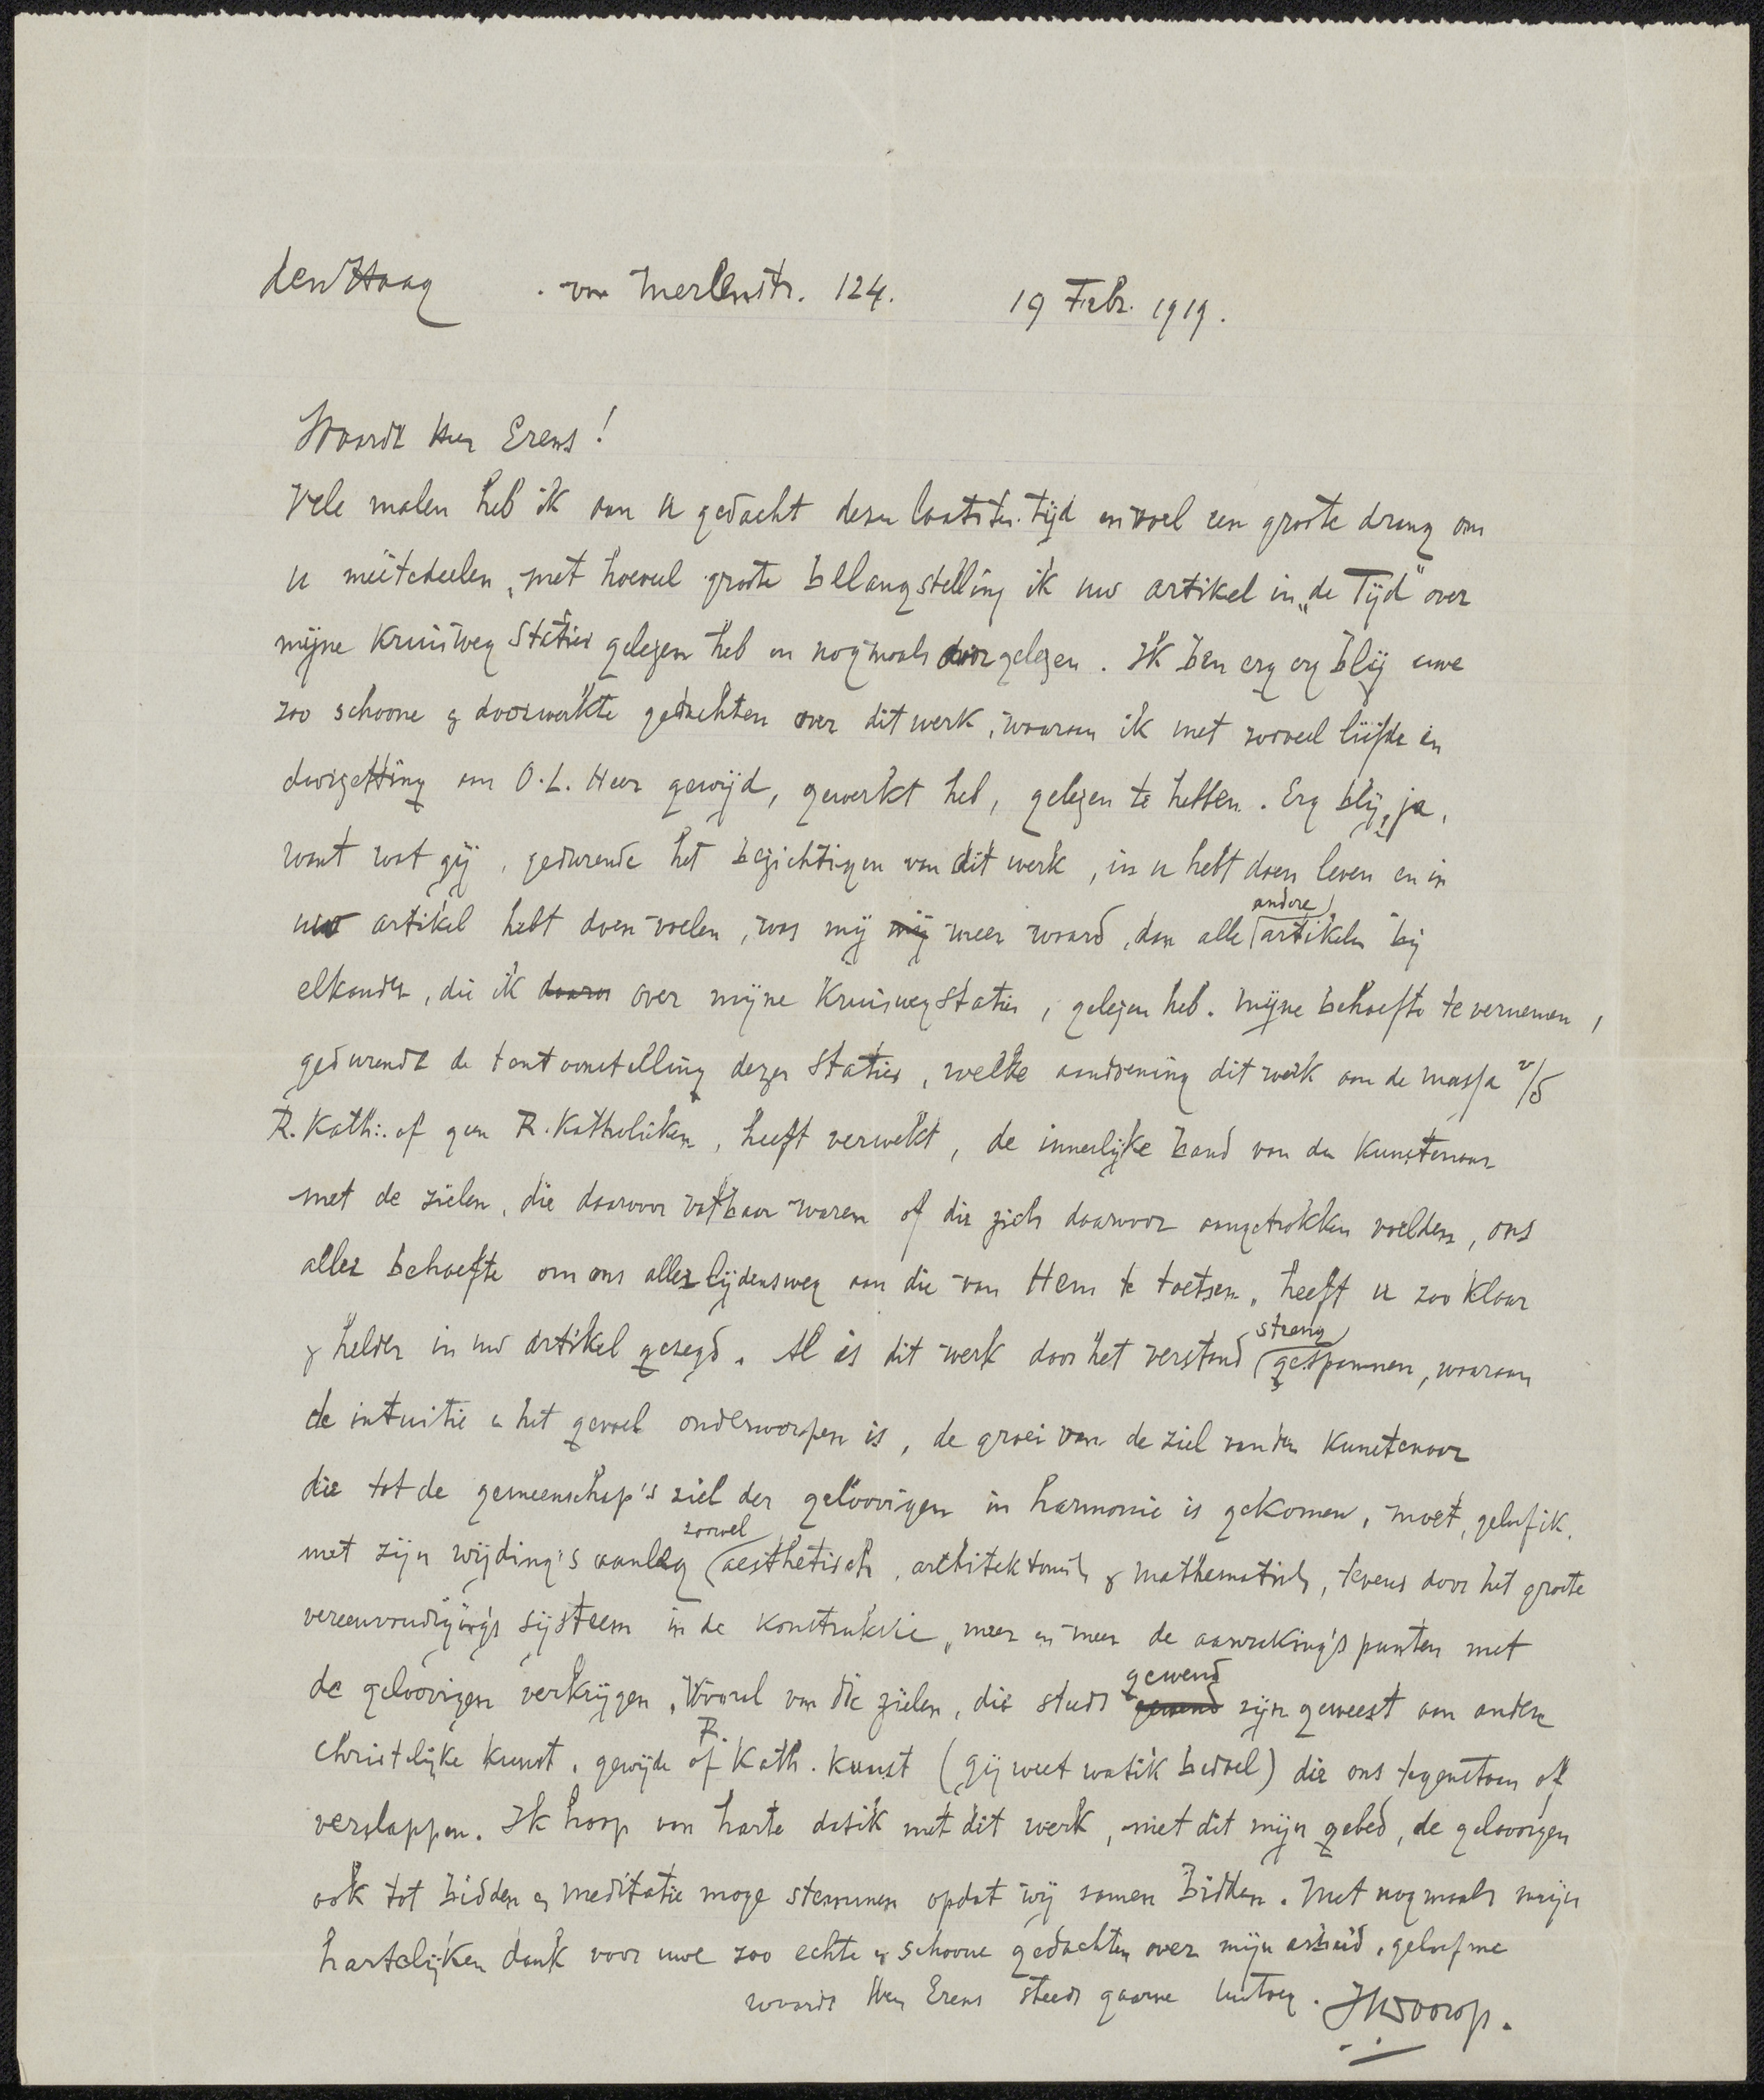 den Haag . van Merlenstr. 124. 19 Febr. 1919.
Waarde Heer Erens!
Vele malen heb ik aan u gedacht dezen laatsten tijd en voel een groote drang om
u meetedeelen, met hoeveel groote belangstelling ik uw artikel in „de Tijd" over
mijne Kruisweg Staties gelezen heb en nogmaals doorgelezen. Ik ben erg erg blij uwe
zoo schoone & doorwerkte gedachten over dit werk, waaraan ik met zooveel liefde en
doorzetting aan O.L. Heer gewijd, gewerkt heb, gelezen te hebben. Erg blij, ja,
want wat gij, gedurende het bezichtigen van dit werk, in u hebt doen leven en in
uw artikel hebt doen voelen, was mij mij meer waard, dan alle andere artikelen bij
elkander, die ik daarov over mijne Kruisweg Staties, gelezen heb. Mijne behoefte te vernemen,
gedurende de tentoonstelling dezer Staties, welke aandoening dit werk aan de massa v/d
R. Kath:. of geen R. Katholieken, heeft verwekt, de innerlijke band van den Kunstenaar
met de zielen, die daarvoor vatbaar waren of die zich daarvoor aangetrokken voelden, ons
aller behoefte om ons aller lijdensweg aan die van Hem te toetsen, heeft u zoo klaar
& helder in uw artikel gezegd. Al is dit werk door het verstand streng gespannen, waaraan
de intuitie & het gevoel onderworpen is, de groei van de ziel van den Kunstenaar
die tot de gemeenschap's ziel der geloovigen in harmonie is gekomen, moet, geloof ik,
met zijn wijding's aanleg zoowel aesthetisch, architektonisch & mathematisch, tevens door het groote
vereenvoudiging's sijsteem in de konstruksie, meer en meer de aanraking's punten met
de geloovigen verkrijgen, vooral van die zielen, die steeds gewend gewend zijn geweest aan andere
christelijke kunst, gewijde of R. Kath. kunst (gij weet wat ik bedoel) die ons tegenstaan of
verslappen. Ik hoop van harte dat ik met dit werk, met dit mijn gebed, de geloovigen
ook tot bidden & meditatie moge stemmen opdat wij samen bidden. Met nogmaals mijn
hartelijken dank voor uwe zoo echte & schoone gedachten over mijn arbeid, geloof me
waarde Heer Erens steeds gaarne Uw JThToorop.